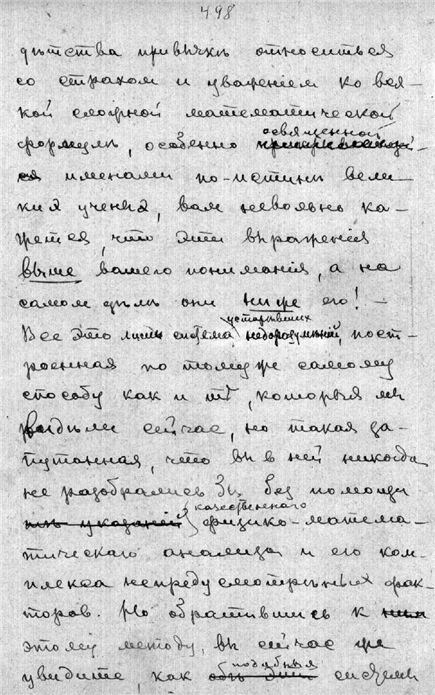 498
дѣтства привычкѣ относиться
со страхомъ и уваженіемъ ко вся-
кой сложной математической
формулѣ, особенно освященной
именами по-истинѣ вели-
кихъ ученыхъ, вамъ невольно ка-
жется, что эти выраженія
выше вашего пониманія, а на
самомъ дѣлѣ они ниже его! —
Все это лишь система устарѣвшихъ недоразумѣній, пост-
роенная по тому же самому
способу какъ и тѣ, которыя мы
видѣли сейчасъ, но такая за-
путанная, что вы въ ней никогда
не разобрались бы безъ помощи
качественнаго физико-матема-
тическаго анализа и его ком-
плекса непредусмотрѣнныхъ фак-
торовъ. Но обратившись къ
этому методу, вы сейчасъ же
увидите, какъ подобныя системы